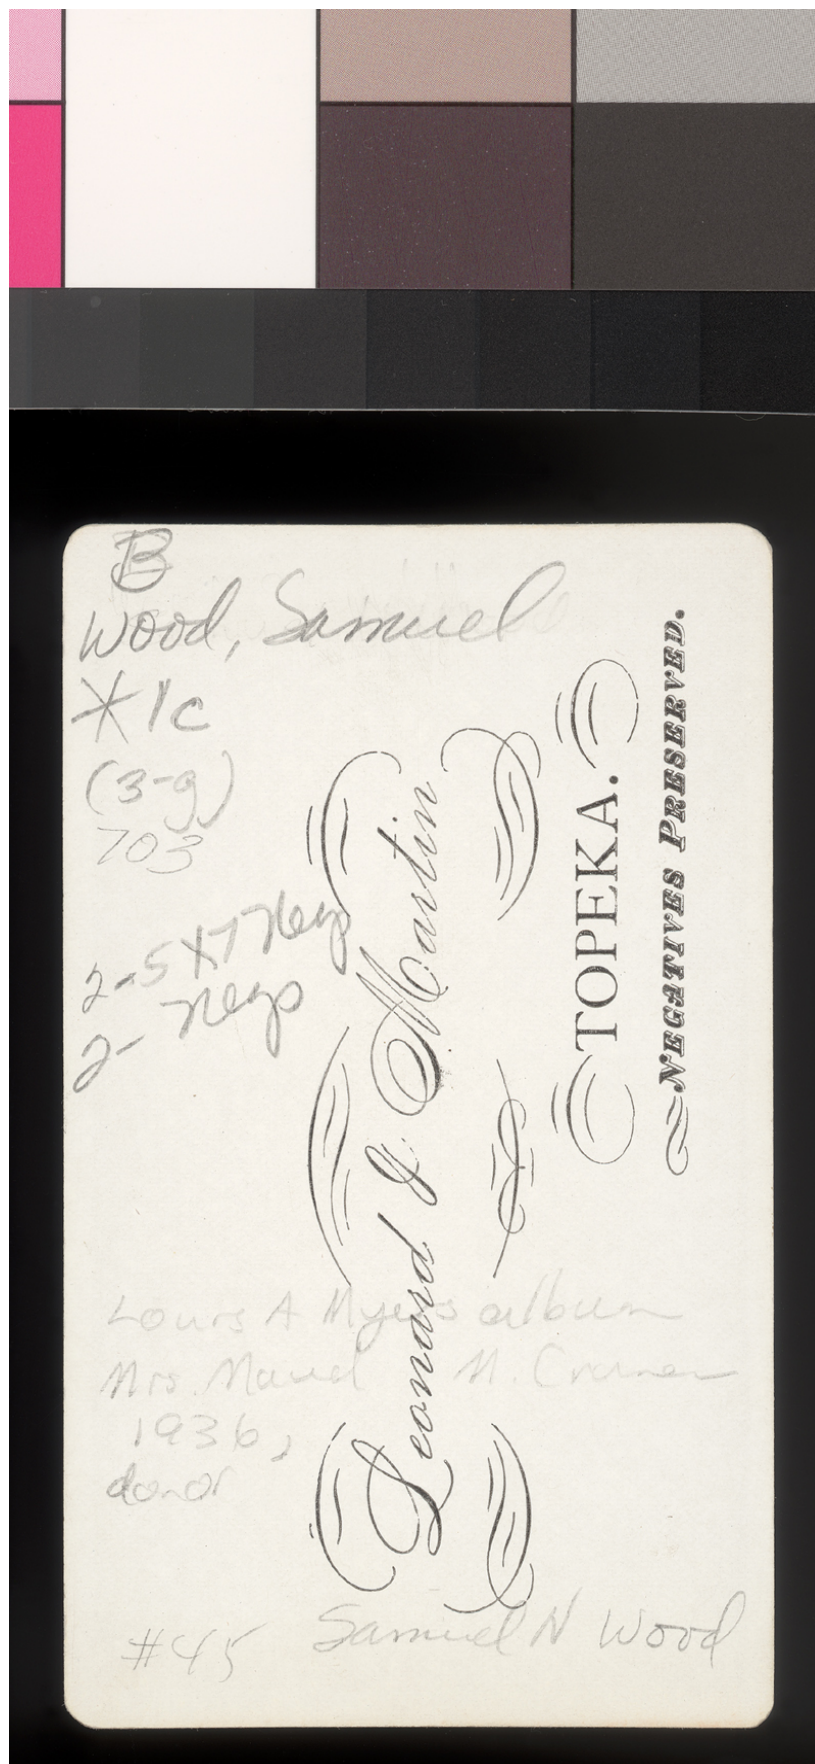 B
Wood, Samuel
*1c
(3-g)
703
2-5X7 Negs
2- Negs
Leonard & Martin
TOPEKA.
NEGATIVES PRESERVED.
Louis A Myers album
Mrs. Maud M.
1936,
donor
#45 Samuel N Wood